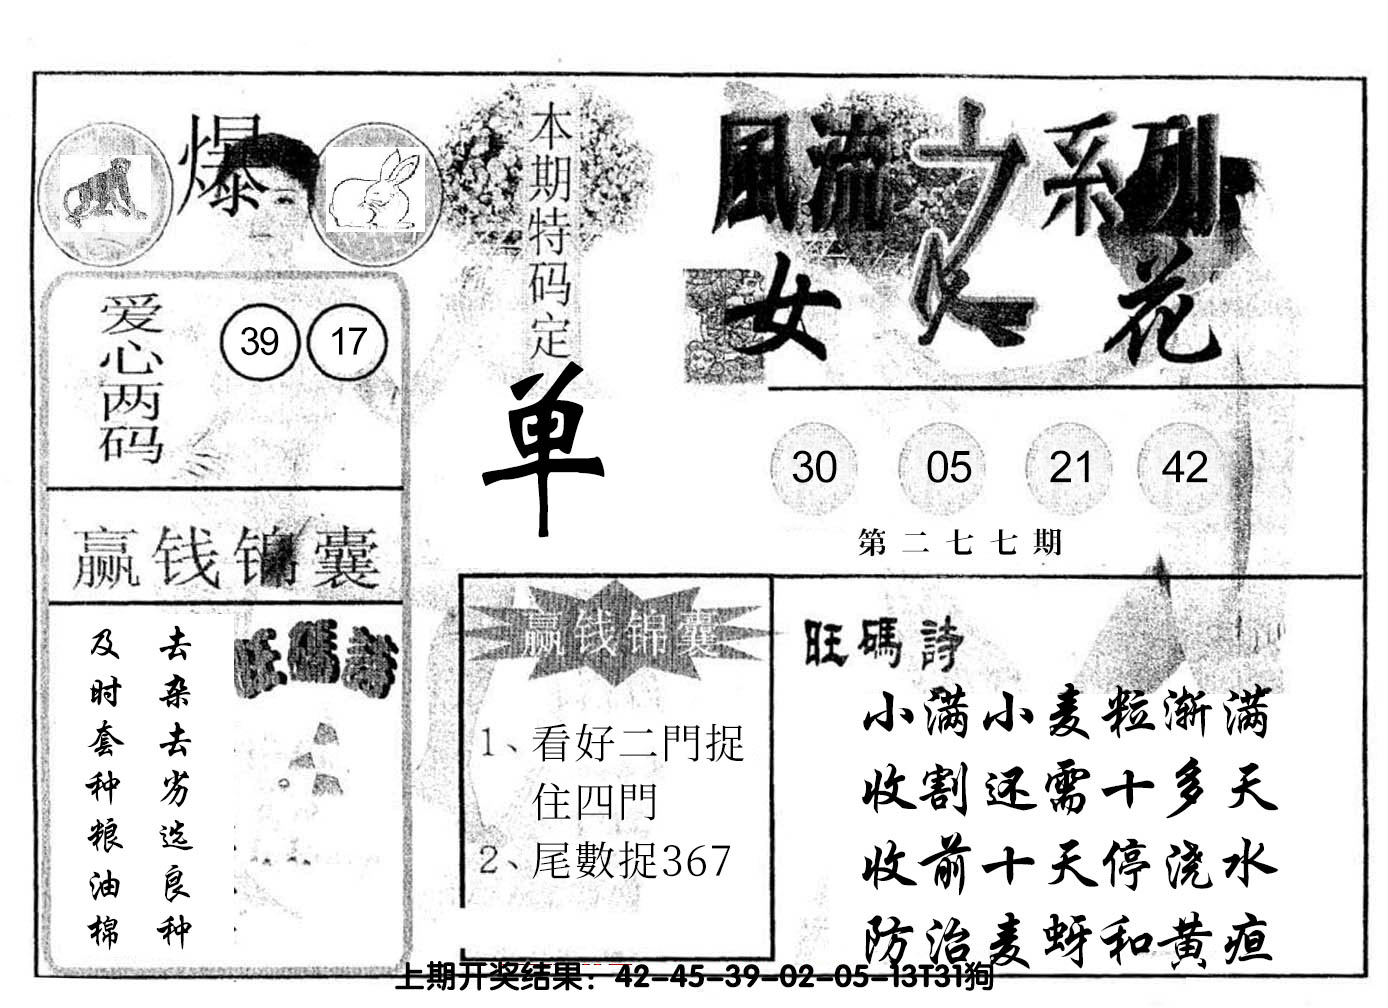 爆
本期特码定
单
風流之系列
女人花
爱心两码
39 17
30 05 21 42
第二七七期
赢钱锦囊
去杂去劣选良种
及时套种粮油棉
旺碼詩
赢钱锦囊
1、看好二門捉
住四門
2、尾數捉367
旺碼詩
小满小麦粒渐满
收割还需十多天
收前十天停浇水
防治麦蚜和黄疸
上期开奖结果：42-45-39-02-05-13T31狗